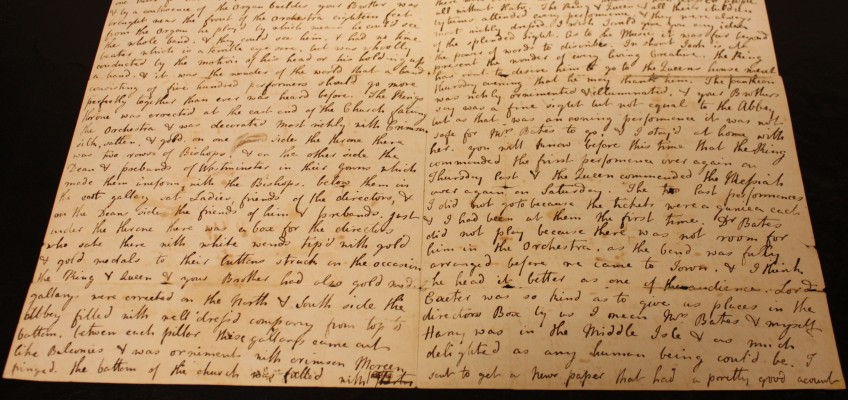 & by a contrivance of the Organ builder your Brother was
brought near the front of the Orchestra eighteen feet
from the organ he play'd by which means he could see
the whole band, & they could see him, & had no time
beater which is a horrible eye sore, but was wholly
conducted by the motion of his head or his holding up
a hand. & it was the wonder of the world that a band
consisting of five hundred performers should go more
perfectly together than ever was heard before. The Kings
throne was errected at the east end of the Church facing
the Orchestra & was decorated most richly with Crimson
silk, satten, & gold, on one side the throne there
was two rows of Bishops, & on the other side the
Dean & prebands of Westminster in their gowns which
made them uneform with the Bishops. below them in
the gallery sat Ladies, friends of the directors, &
on the Deans side the friends of him & prebands. just
under the throne there was a box for the directors
who sate there with white wands tip'd with gold
& gold medals to their buttons struck on the occasion
the King & Queen & your Brother had also gold
gallarys were errected on the North & South side the
abbey filled with well dress'd company from top to
bottom, between each pillar these gallarys came out
like Balconies & was ornements with crimson Moreen
fringed. the bottom of the church was filled with
that Katy. The King & Queen & all their
times attended every performance & they were always
most richly dressed. I wish I could give you any idea
of the splendid sight. As to the Music it was far beyond
the power of words to describe. In short Joah is at
present the wonder of every living creature. the King
has sent to desire him to go to the Queens house next
thursday evening that he may thank him. The pantheon
was richly ornimented & illuminated, & your Brothers
say was a fine sight but not equal to the Abbey
but as that was an evening performence it was not
safe for Mrs Bates to go, & I stay'd at home with
her. you will know before this time that the King
commanded the first performence over again on
Thursday last & the Queen commanded the Messiah
over again on Saturday. The last performances
I did not go to because the tickets were a guinea each
& I had been at them the first time. Dr Bates
did not play because there was not room for
him in the Orchestra, as the band was fully
arranged before we came to Town, & I think
he head it better as one of the audience. Lord
Exeter was so kind as to give us places in the
directors Box by us I mean Mrs Bates & myself
Harry was in the Middle Isle & as much
delighted as any human being could be. I
sent to get a News paper that had a pretty good acount